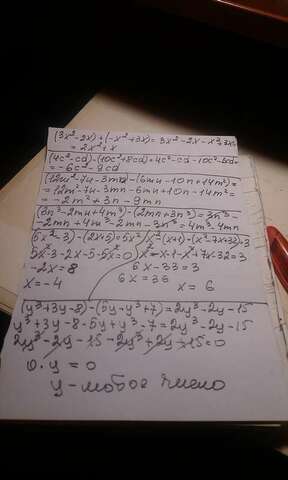 (3x²-2x)+(-x²+3x)= 3x²-2x-x²+3x=
= 2x²+x
(4c²-cd)-(10c²+8cd)=4c²-cd-10c²-8cd=
= -6c²-9cd
(12m²-7n-3mn)-(6mn-10n+14m²)=
= 12m²-7n-3mn-6mn+10n-14m²=
= -2m²+3n-9mn
(3n³-2mn+4m³)-(2mn+3n³)=3n³-
-2mn+4m³-2mn-3n³=4m³-4mn
(5x²-3)-(2x+5)=5x²
5x²-3-2x-5-5x²=0
-2x=8
x=-4
x²-(x+1)-(x²-7x+32)=3
x²-x-1-x²+7x-32=3
6x-33=3
6x=36
x=6
(y³+3y-8)-(5y-y³+7)=2y³-2y-15
y³+3y-8-5y+y³-7=2y³-2y-15
2y³-2y-15-2y³+2y+15=0
0·y=0
y-любое число